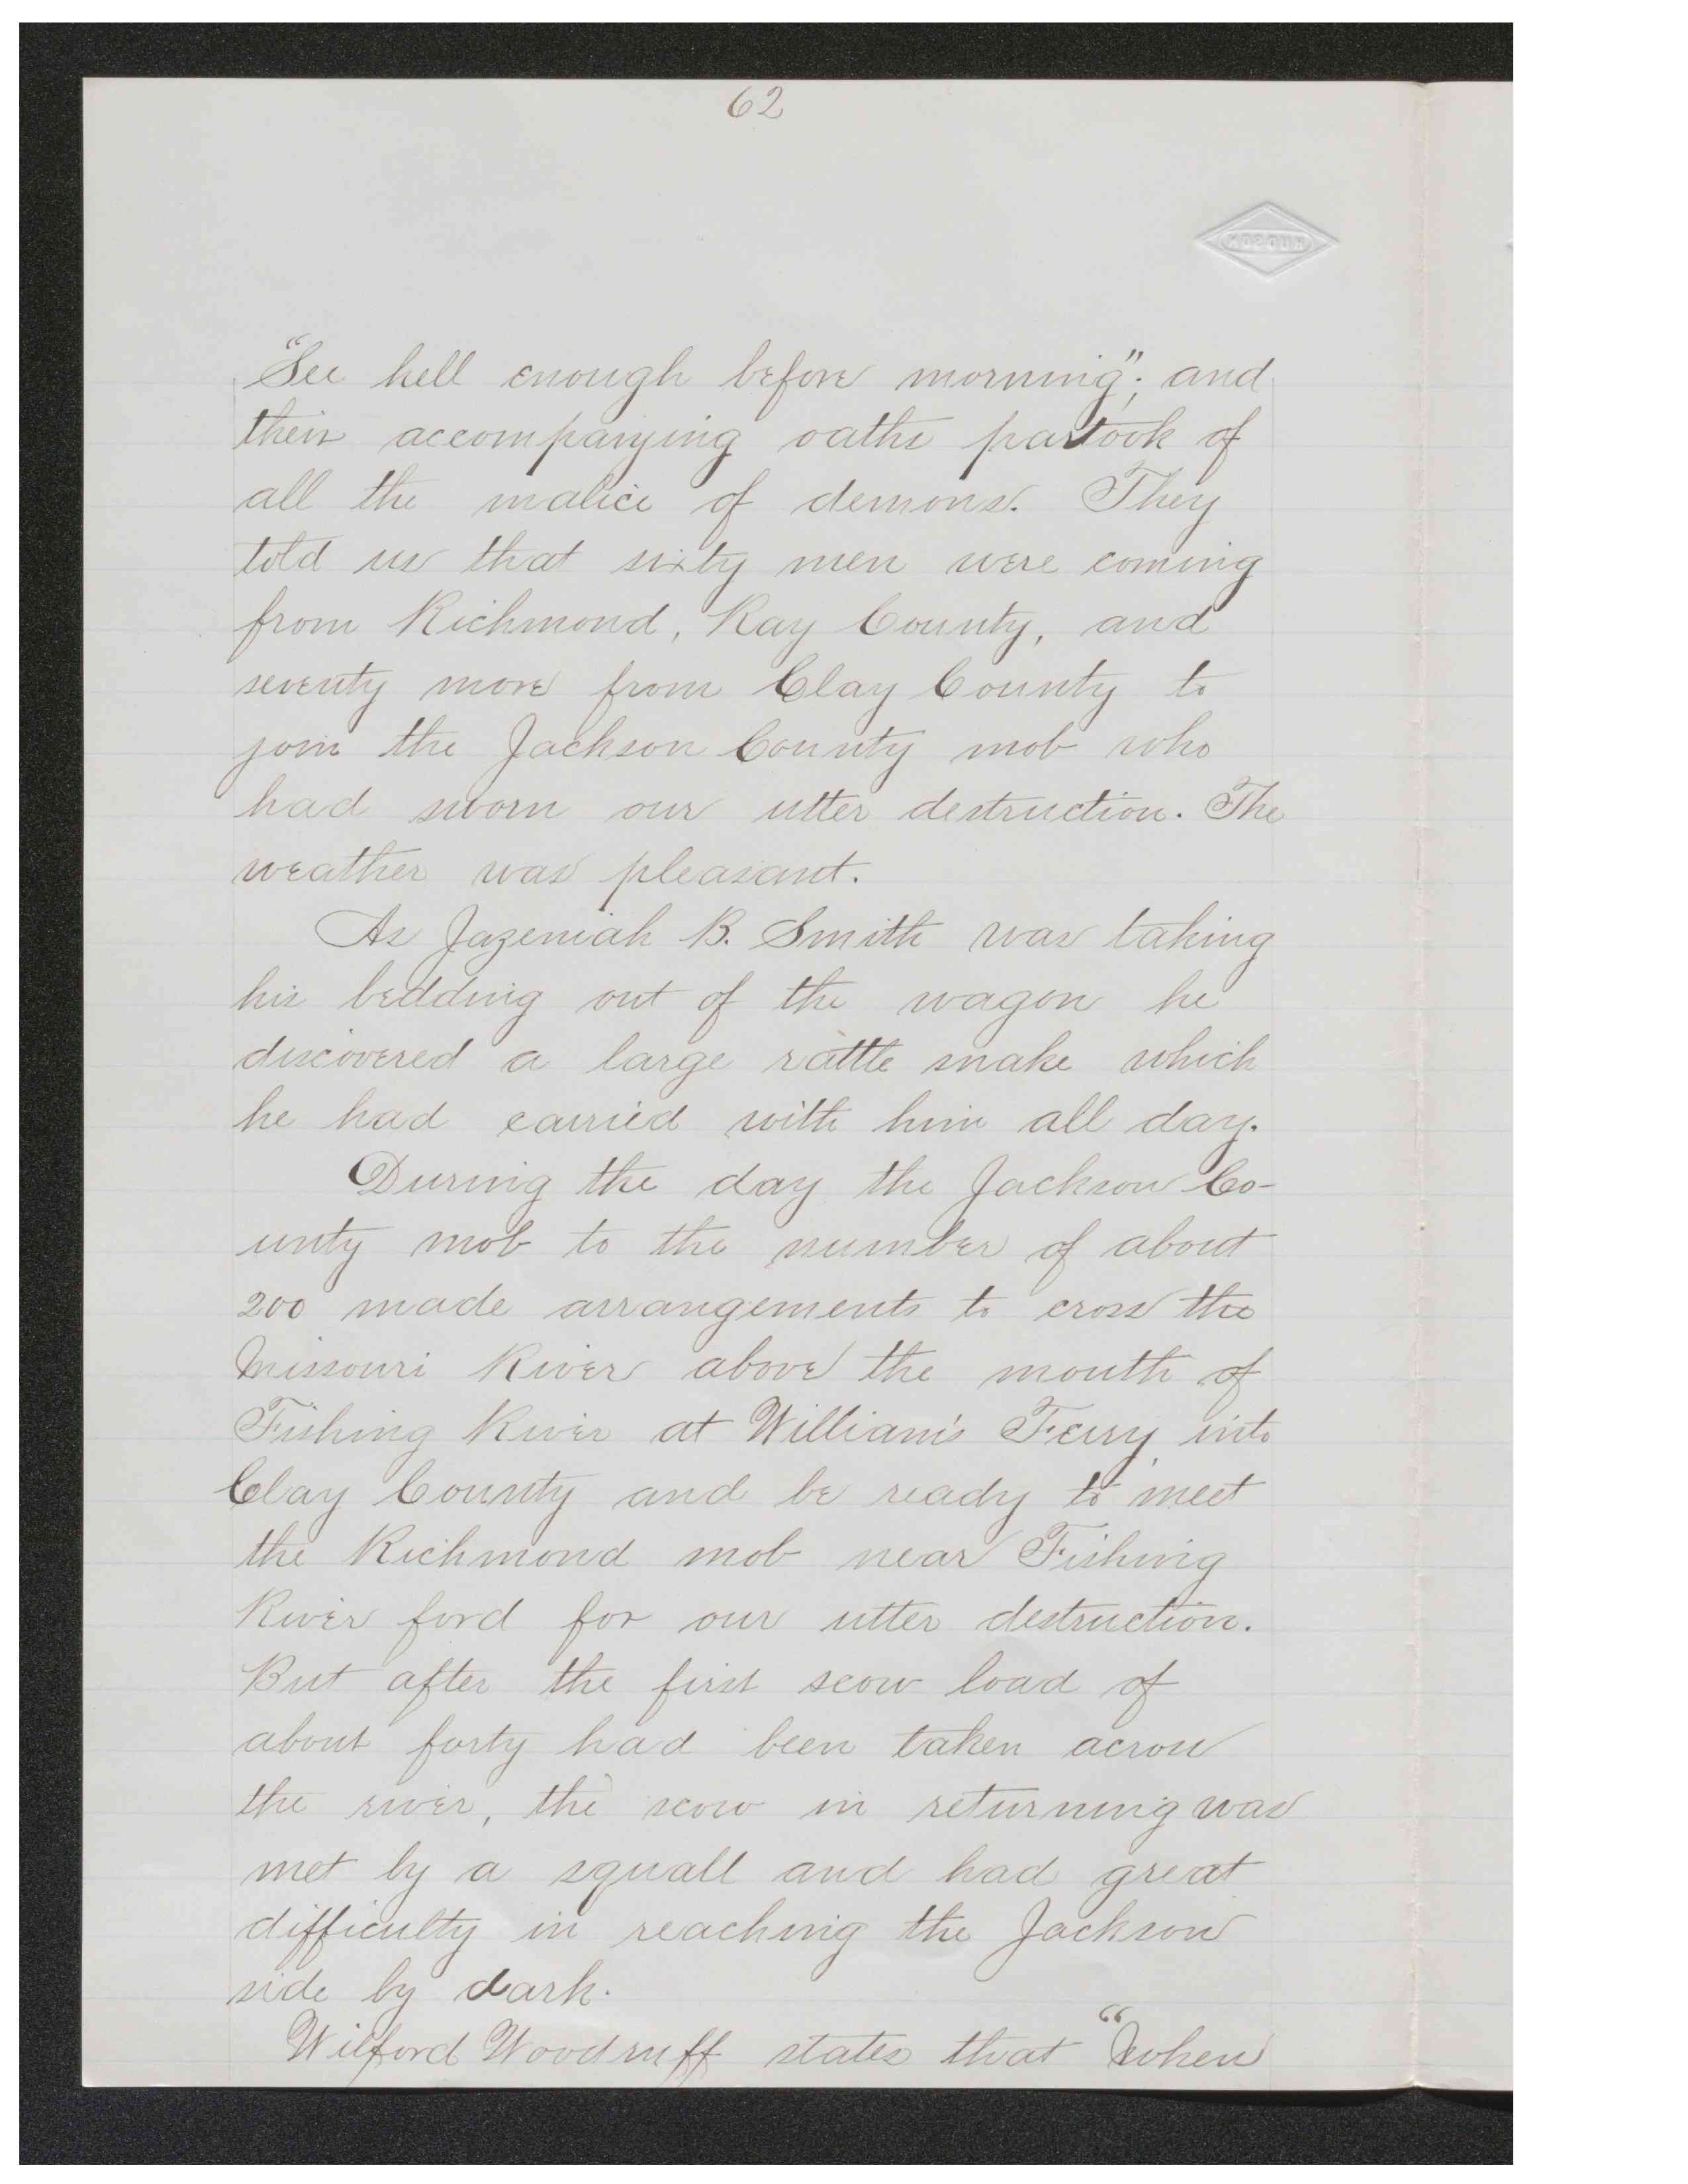 62
HUDSON
"See hell enough before morning"; and
their accompanying oaths partook of
all the malice of demons. They
told us that sixty men were coming
from Richmond, Ray County, and
seventy more from Clay County to
join the Jackson County mob who
had sworn our utter destruction. The
weather was pleasant.
As Jazeniah B. Smith was taking
his bedding out of the wagon he
discovered a large rattle snake which
he had carried with him all day.
During the day the Jackson Co-
unty mob to the number of about
200 made arrangements to cross the
Missouri River above the mouth of
Fishing River at William's Ferry, into
Clay County and be ready to meet
the Richmond mob near Fishing
River ford for our utter destruction.
But after the first scow load of
about forty had been taken across
the river, the scow in returning was
met by a squall and had great
difficulty in reaching the Jackson
side by dark.
Wilford Woodruff states that "When